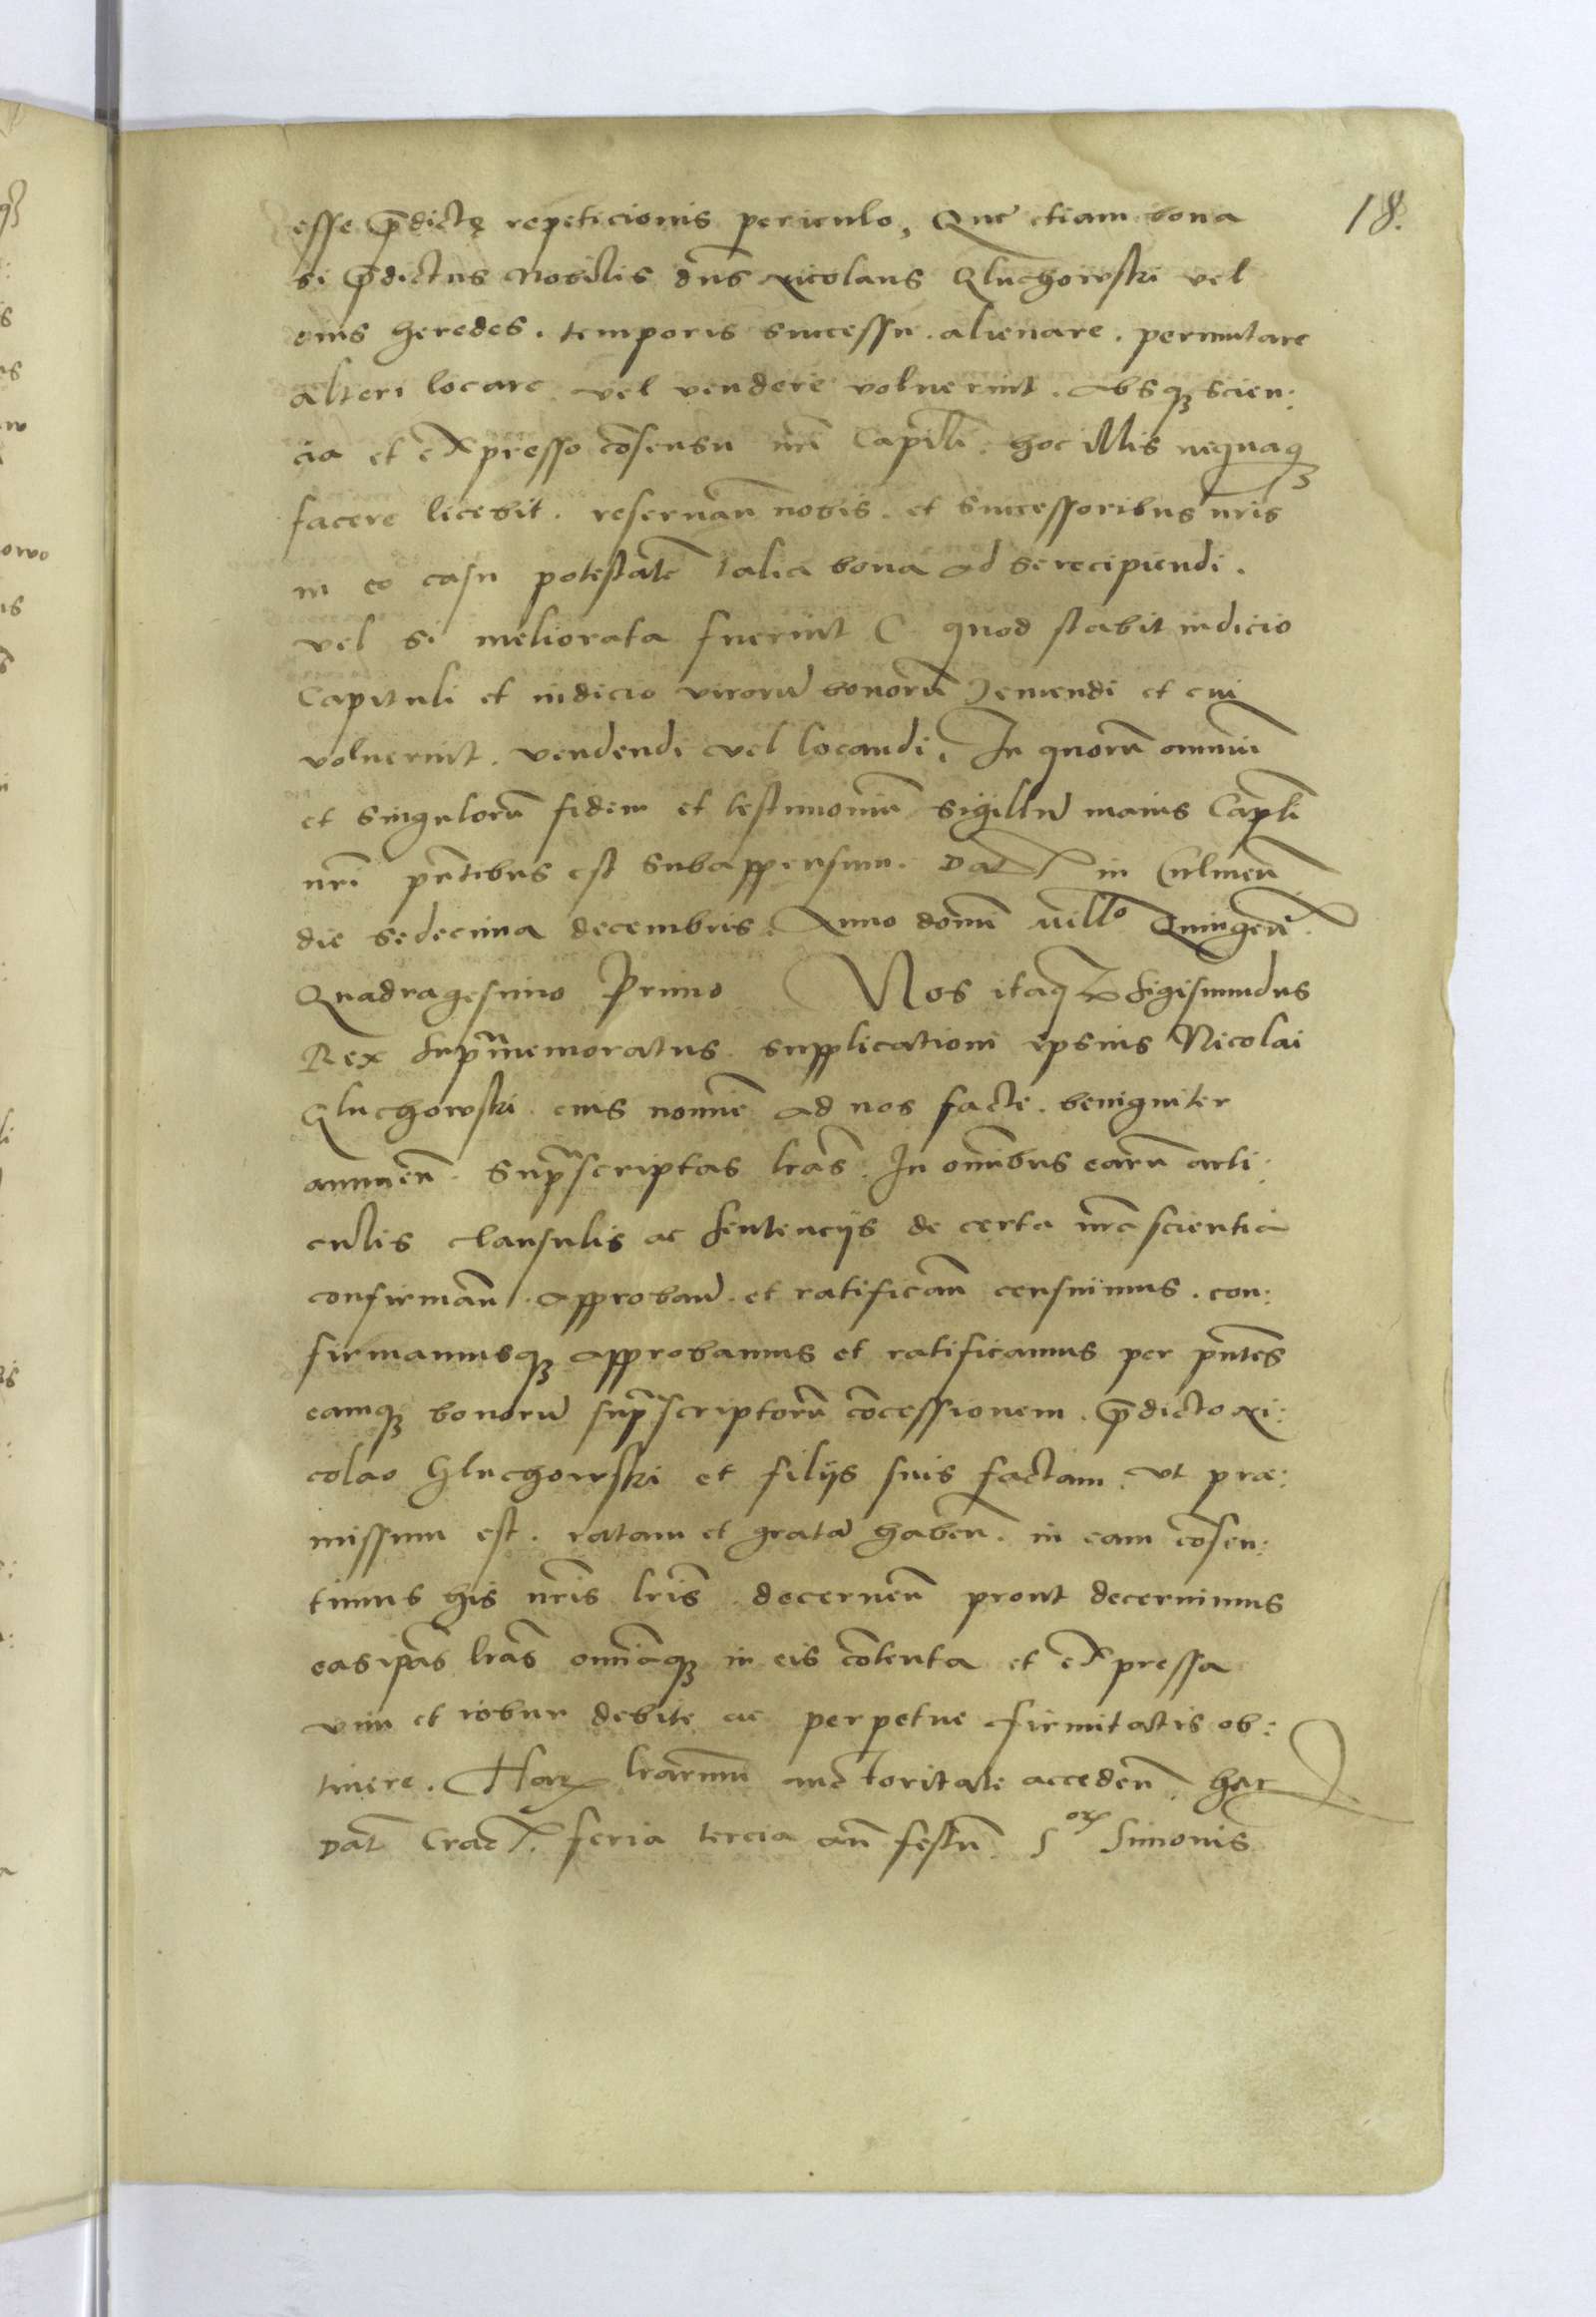 18.
esse p̄dictę repeticionis periculo, Que etiam bona
si p̄dictus Nobilis dn̄s Nicolaus Gluchowski vel
eius heredes. temporis successu. alienare. permutare
alteri locare vel vendere voluerint. absq₃ scien:
cia et expresso cōsensu nr̄i Capli. hoc illis nequaq̄
facere licebit. reseruan̄ nobis. et successoribus nr̄is
in eo casu potestatē talia bona ad se recipiendi.
vel si meliorata fuerint ( quod stabit iudicio
Capituli et iudicio virorū bonorū ) emendi et cui
voluerint. vendendi vel locandi. In quorū omniū
et singulorū fidem et testimoniū sigillū maius Capli
nr̄i pn̄tibus est subappensum. Dat in Culmen̄
die sedecima decembris. Anno domī mill̄o Quingen̄.
Quadragesimo Primo Nos itaq₃ Sigismundus
Rex supramemoratus. supplicationi ipsius Nicolai
Gluchowski. eius nomīe ad nos facte. benigniter
annuen̄. supra scriptas lrās. In omībus earū arti:
culis clausulis ac sentencijs de certa nrā scientia
confirman̄. approban̄. et ratifican̄ censuimus. con:
firmamusq₃ approbamus et ratificamus per pn̄tes
eamq₃ bonorū supra scriptorū cōcessionem. p̄dicto Ni:
colao Gluchowski et filijs suis factam. vt præ:
missum est. ratam et gratā haben̄. in eam cōsen:
timus his nr̄is lr̄is. decernen̄ prout decernimus
eas ipās lrās omīaq₃ in eis cōtenta et expressa
vim et robur debite ac perpetue firmitatis ob:
tinere. Harꝝ lrārum auctoritate acceden̄.
Dat Crac. feria tercia an̄ festū S orꝝ Simonis